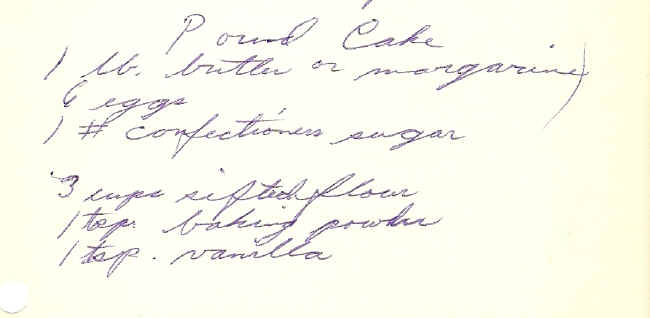 Pound Cake
1 lb. butter or margarine
6 eggs
1 # confectioners sugar
3 cups sifted flour
1 tsp. baking powder
1 tsp. vanilla